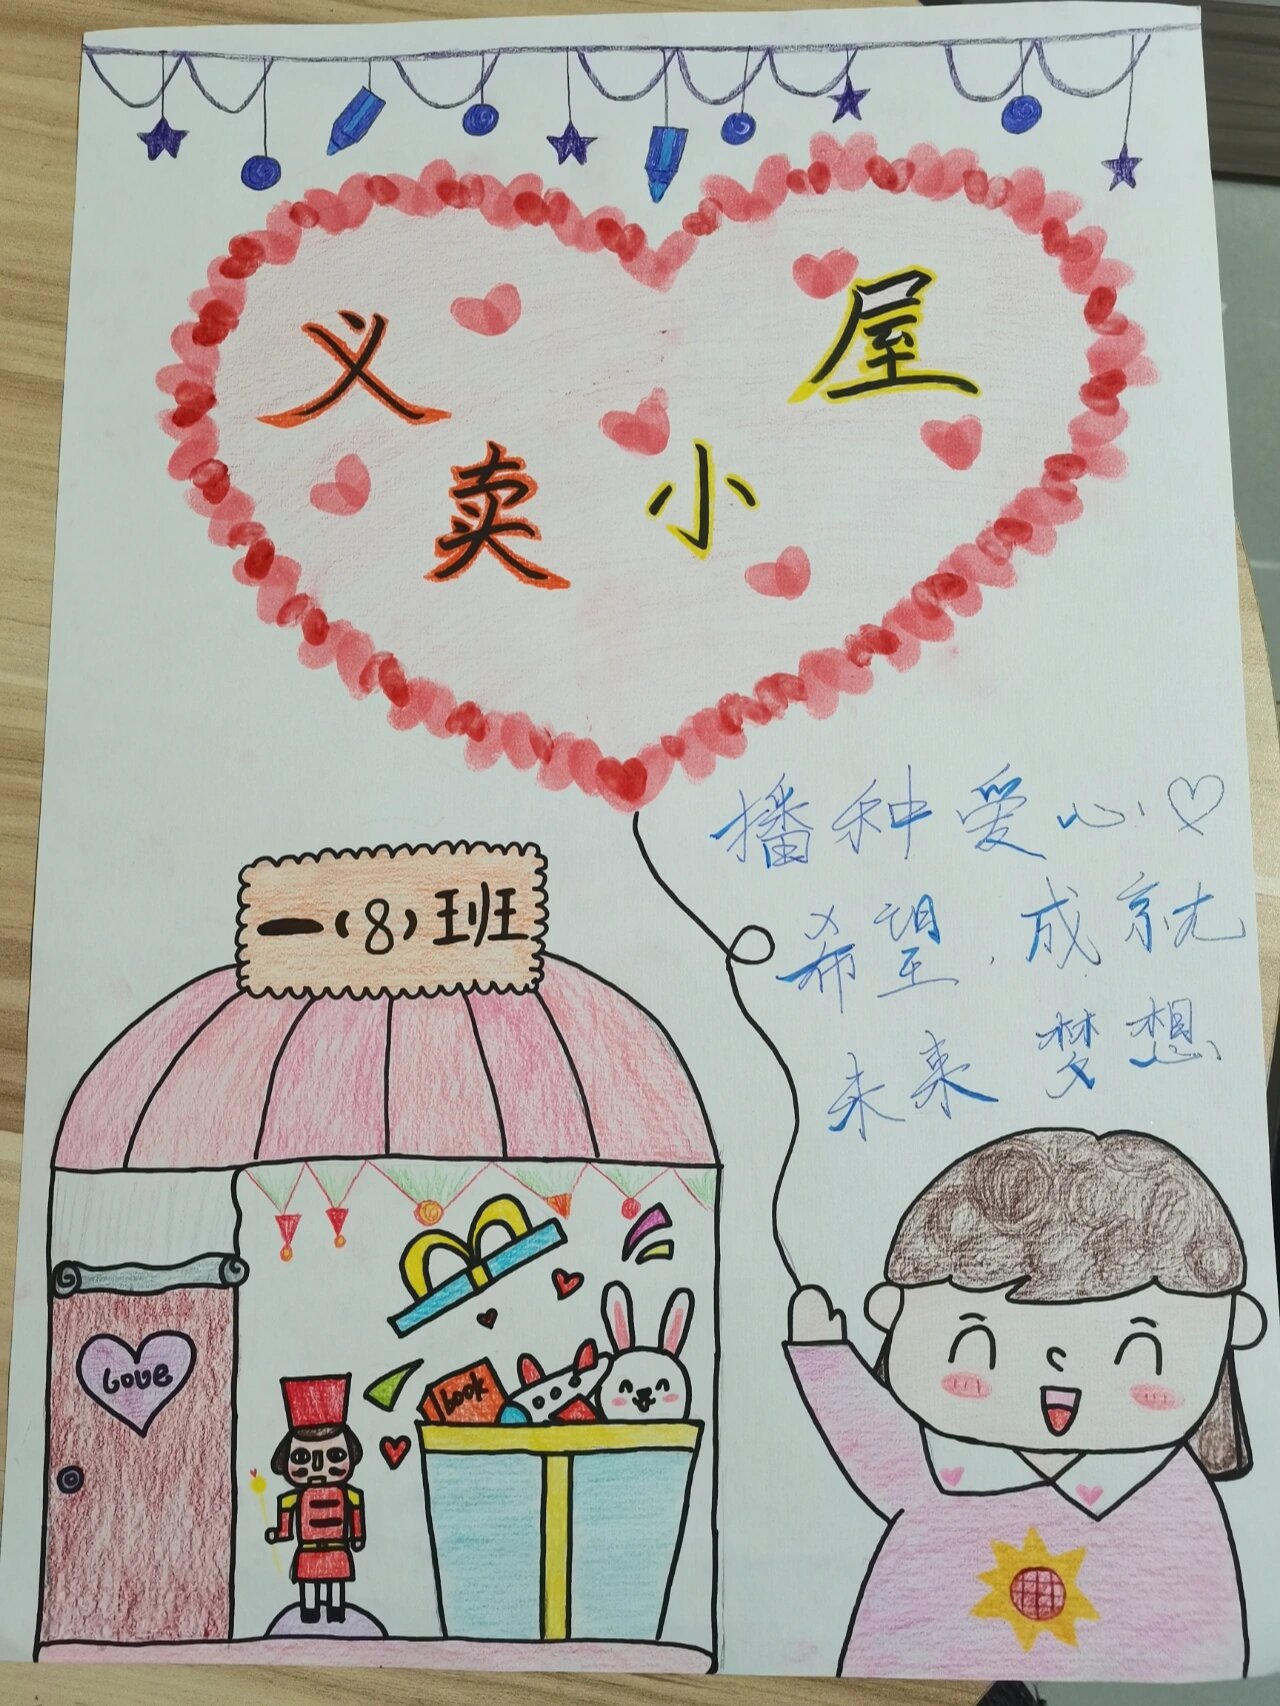 义卖小屋
播种爱心♡
希望.成就
未来 梦想
一(8)班
Love
book